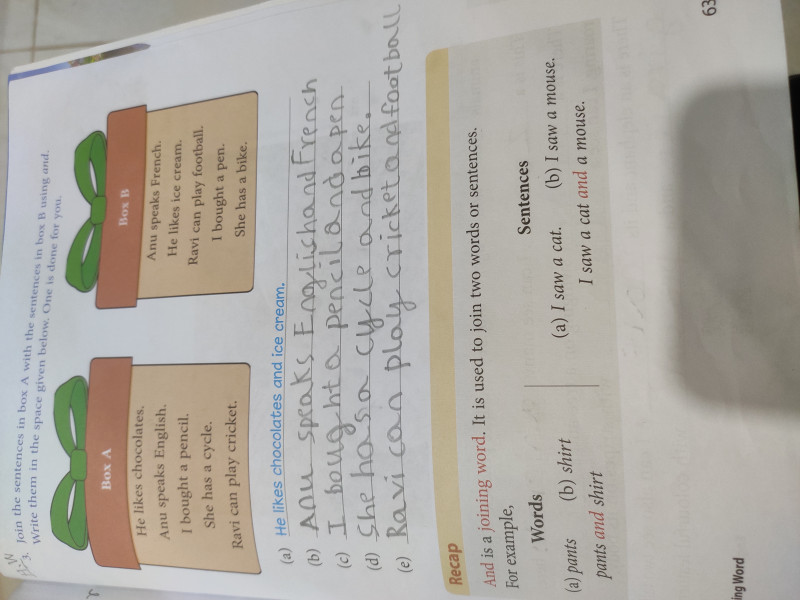 3. Join the sentences in box A with the sentences in box B using and.
Write them in the space given below. One is done for you.
Box A
He likes chocolates.
Anu speaks English.
I bought a pencil.
She has a cycle.
Ravi can play cricket.
Box B
Anu speaks French.
He likes ice cream.
Ravi can play football.
I bought a pen.
She has a bike.
(a) He likes chocolates and ice cream.
(b) Anu speaks English and French
(c) I bought a pencil and a pen
(d) She has a cycle and bike.
(e) Ravi can play cricket and football
Recap
And is a joining word. It is used to join two words or sentences.
For example,
Words
(a) pants (b) shirt
pants and shirt
Sentences
(a) I saw a cat. (b) I saw a mouse.
I saw a cat and a mouse.
ing Word
63